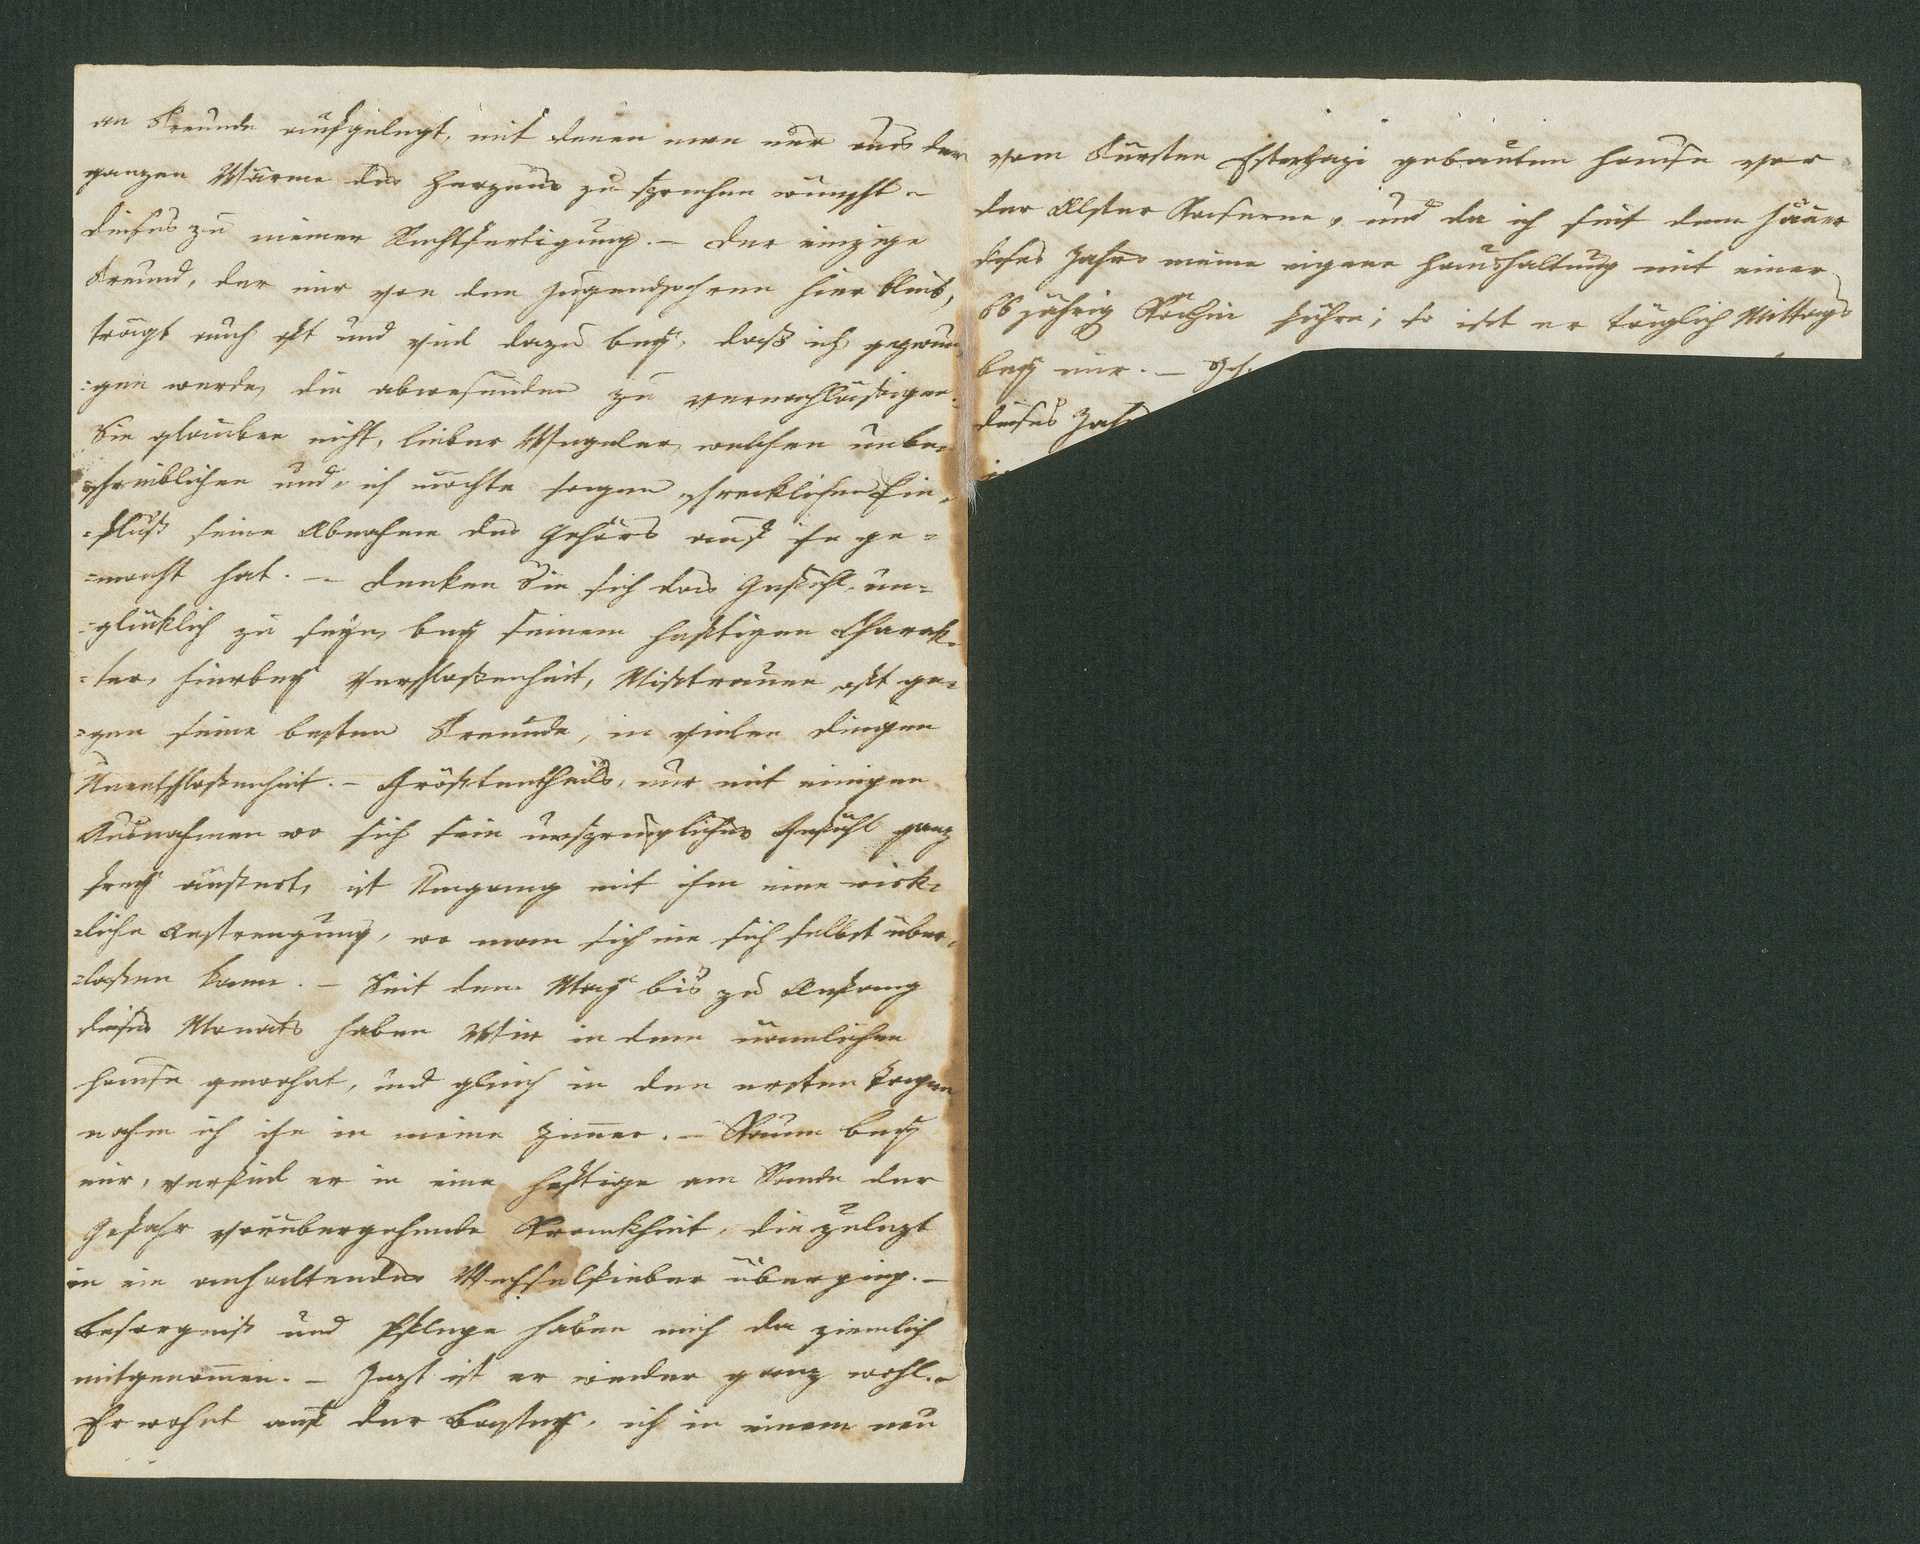 an Freunde aufgelegt, mit denen man nur aus der
ganzen Wärme des Herzens zu sprechen wünscht –
dieses zu meiner Rechtfertigung. – Der einzige
Freund, der mir von den Jugendjahren hier blieb,
trägt auch oft und viel dazu bey, daß ich gezwun
=gen werde, die abwesenden zu vernachläßigen.
Sie glauben nicht, lieber Wegeler, welchen unbe=
schreiblichen und, ich möchte sagen schrecklichen Ein=
=fluß seine Abnahme des Gehörs auf ihn ge=
=macht hat. – Denken Sie sich das Gefühl, un=
=glücklich zu seyn, bey seinem heftigen Charak=
=ter, hierbey Verschloßenheit, Mißtrauen oft ge=
=gen seine besten Freunde, in vielen Dingen
Unentschloßenheit. – Größtentheils, nur mit einigen
Ausnahmen wo sich sein ursprüngliches Gefühl ganz
frey äußert, ist Umgang mit ihm eine wirk=
=liche Anstrengung, wo man sich nie sich selbst über=
=laßen kann. – Seit dem May bis zu Anfang
dieses Monats haben Wir in dem nämlichen
Hause gewohnt, und gleich in den ersten Tagen
nahm ich ihn in meine Zim̅er. – Kaum bey
mir, verfiel er in eine heftige am Rande der
Gefahr vorübergehende Krankheit, die zulezt
in ein anhaltendes Wechselfieber übergieng. –
Besorgniß und Pflege haben mich da ziemlich
mitgenom̅en. – Jezt ist er wieder ganz wohl. –
Er wohnt auf der Bastey, ich in einem neu
vom Fürsten Esterhazi gebauten Hause vor
der Alster Kaserne, und da ich seit dem Jäner
dieses Jahrs meine eigene Haushaltung mit einer
86 jährig Köchin führe; so ißt er täglich Mittags
bey mir. –
dieses Jah